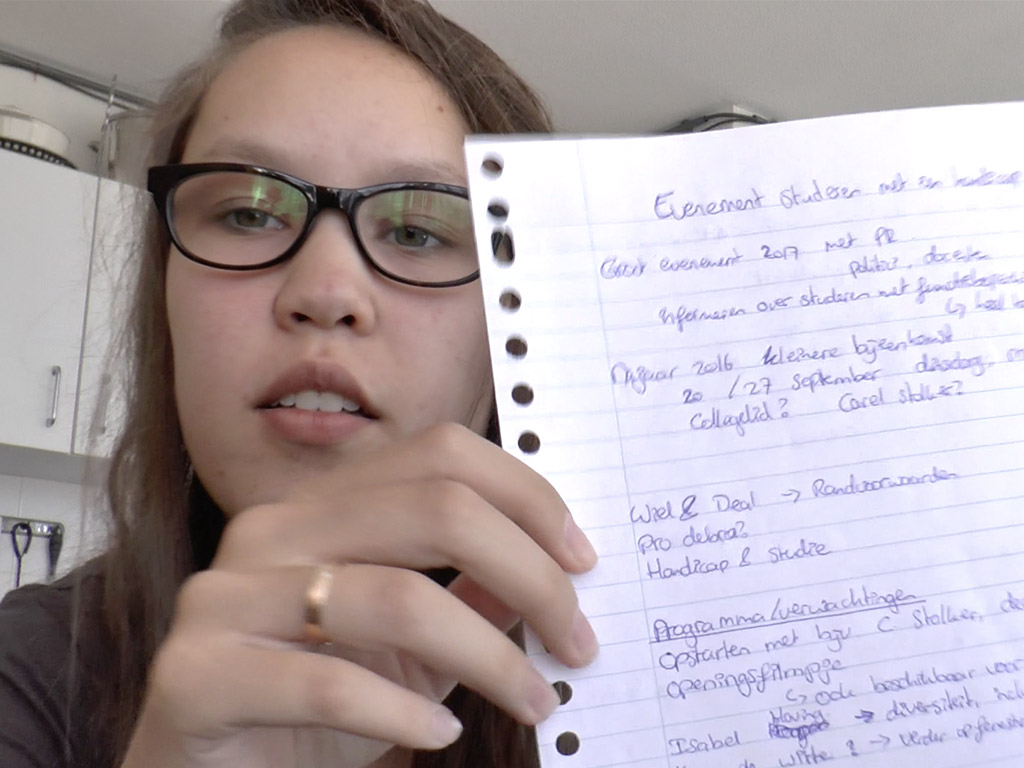 Evenement studeren met een
Groot evenement 2017 met PR
politici, docenten
informeren over studeren met functiebeperking
↳ heel
Najaar 2016 kleinere bijeenkomst
20 / 27 september dinsdag,
Collegelid? Carel Stolker?
Wiel & Deal → Randvoorwaarden
Pro debora?
Handicap & Studie
Programma/verwachtingen
Opstarten met bijv C Stolker,
openingsfilmpje
↳ ook beschikbaar voor
Isabel → diversiteit,
de Witte → verder